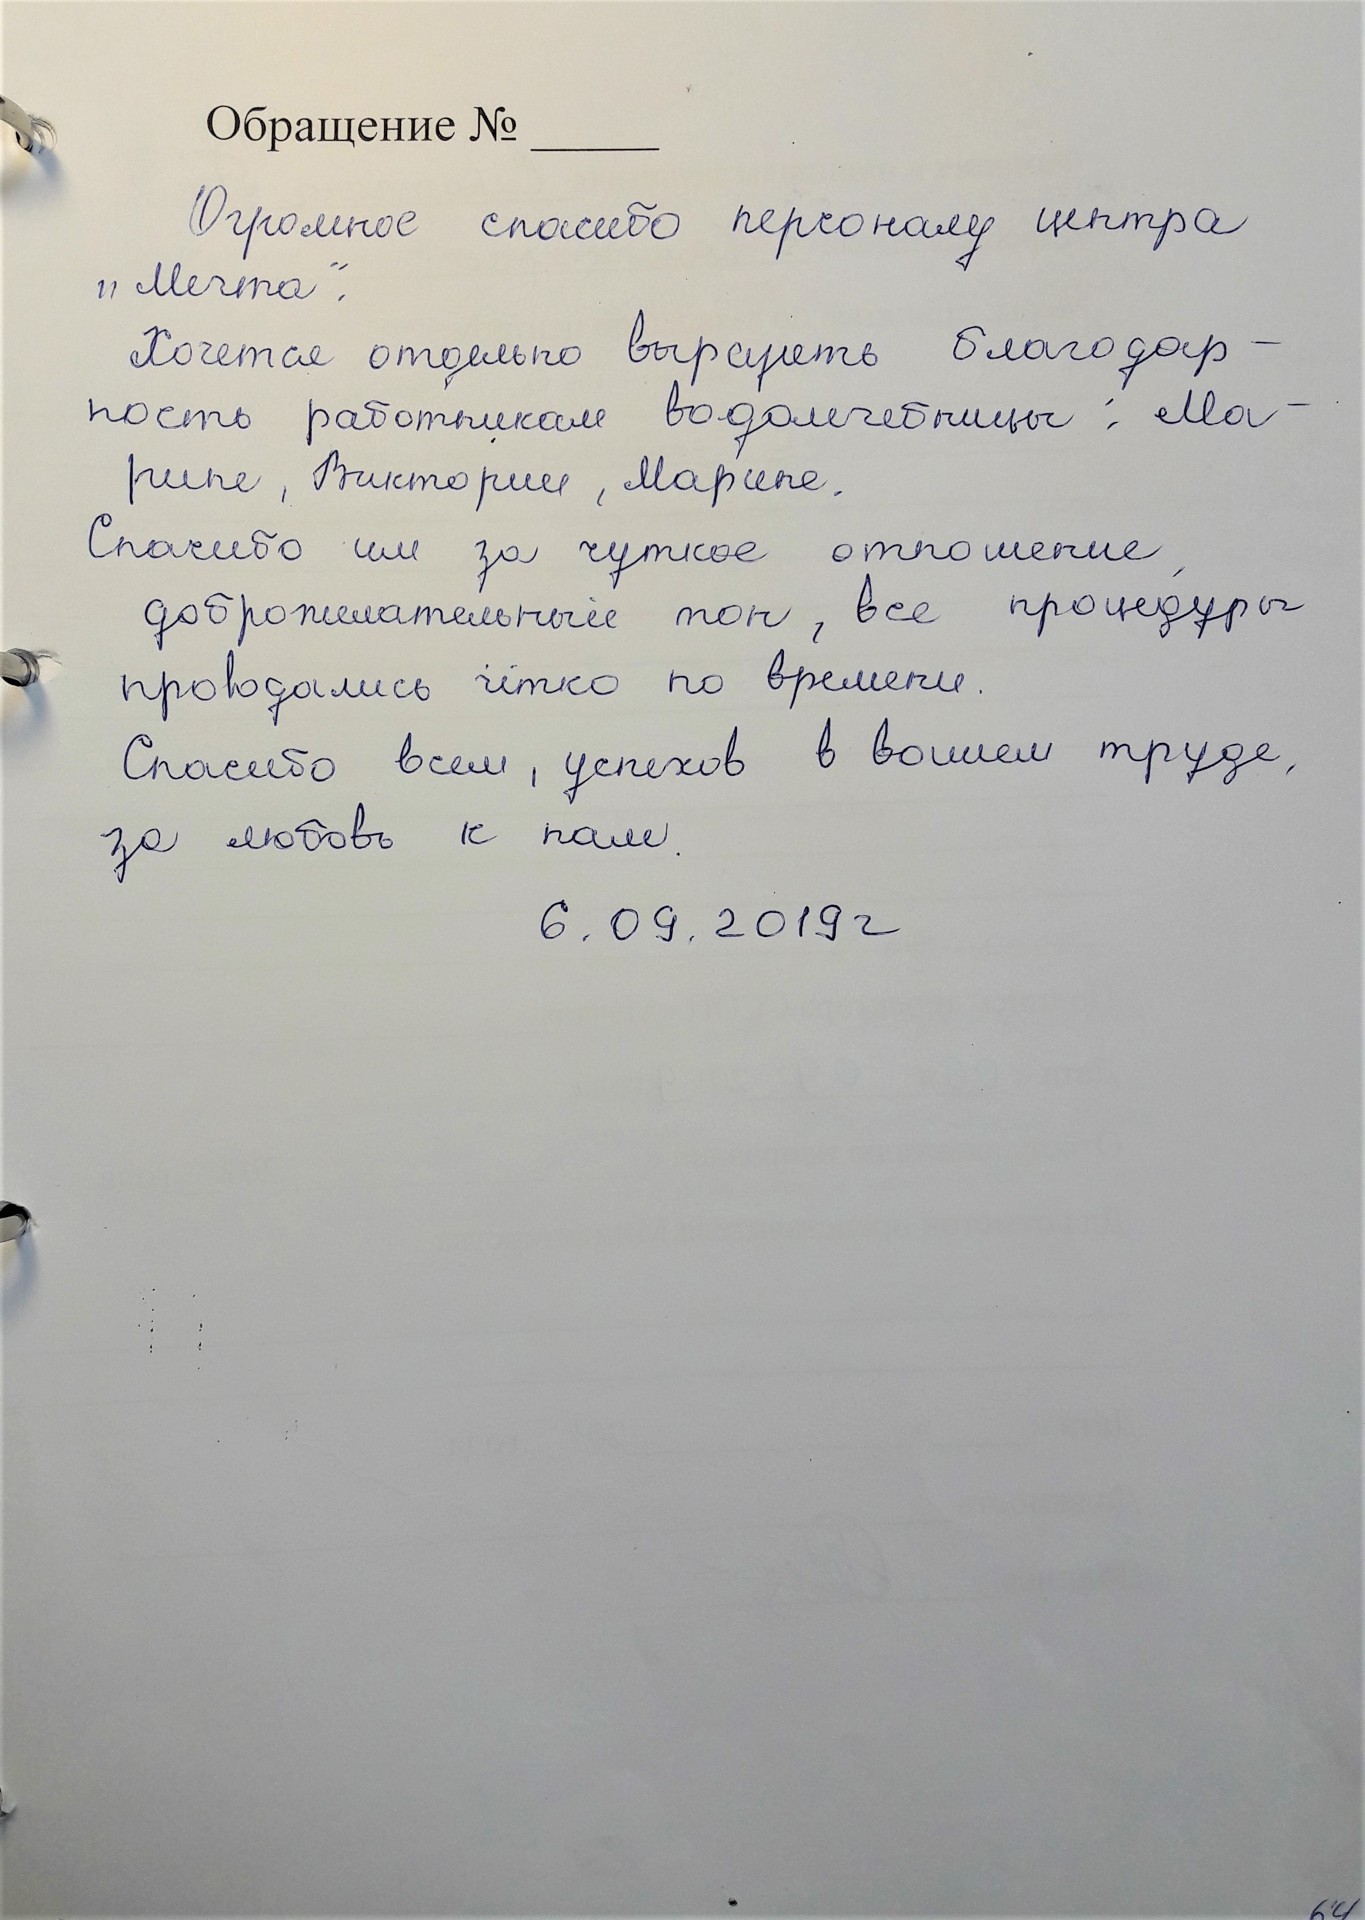 Обращение № _____
Огромное спасибо персоналу центра
„Мечта".
Хочется отдельно выразить благодар-
ность работникам водолечебницы: Ма-
рине, Виктории, Марине.
Спасибо им за чуткое отношение,
доброжелательный тон, все процедуры
проводились чётко по времени.
Спасибо всем, успехов в вашем труде,
за любовь к нам.
6.09.2019г
64